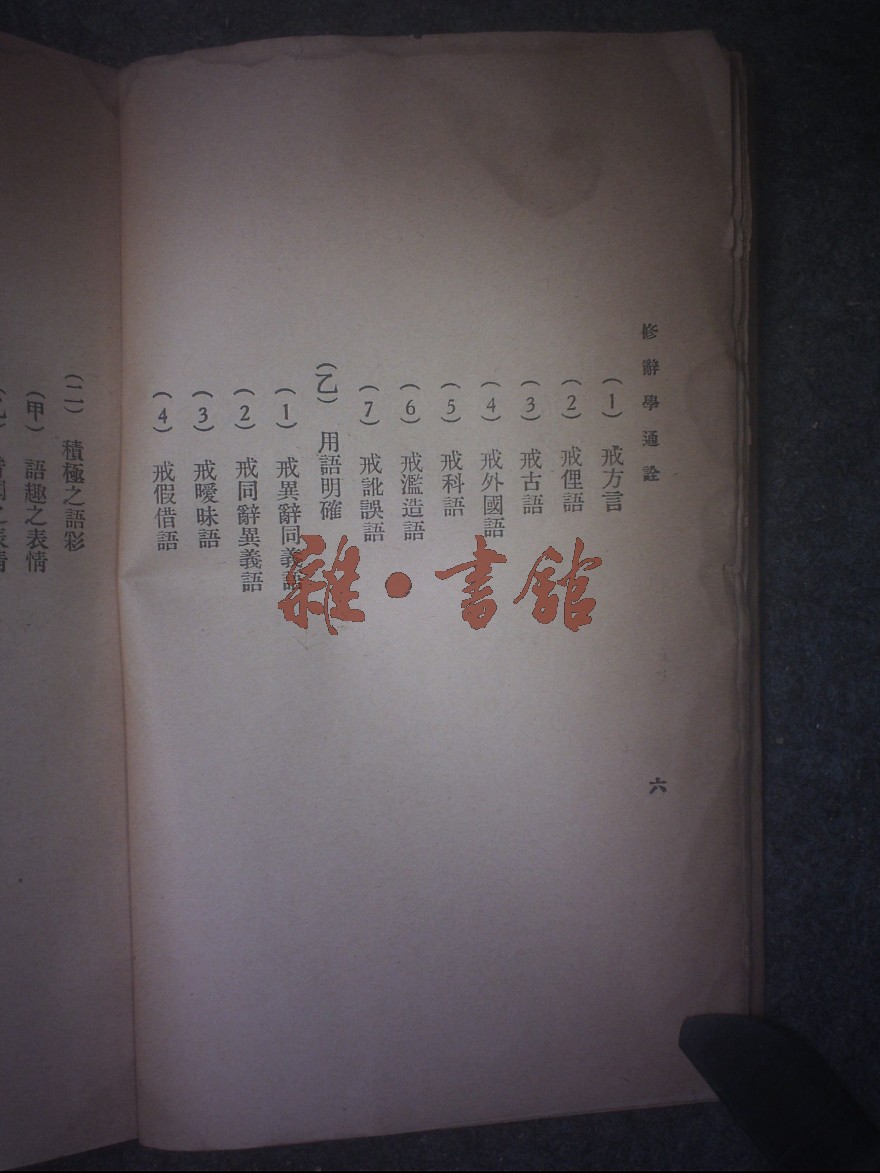 修辭學通詮
(1) 戒方言
(2) 戒俚語
(3) 戒古語
(4) 戒外國語
(5) 戒科語
(6) 戒濫造語
(7) 戒訛誤語
(乙) 用語明確
(1) 戒異辭同義語
(2) 戒同辭異義語
(3) 戒曖昧語
(4) 戒假借語
六
(二) 積極之語彩
(甲) 語趣之表情
雜·書館